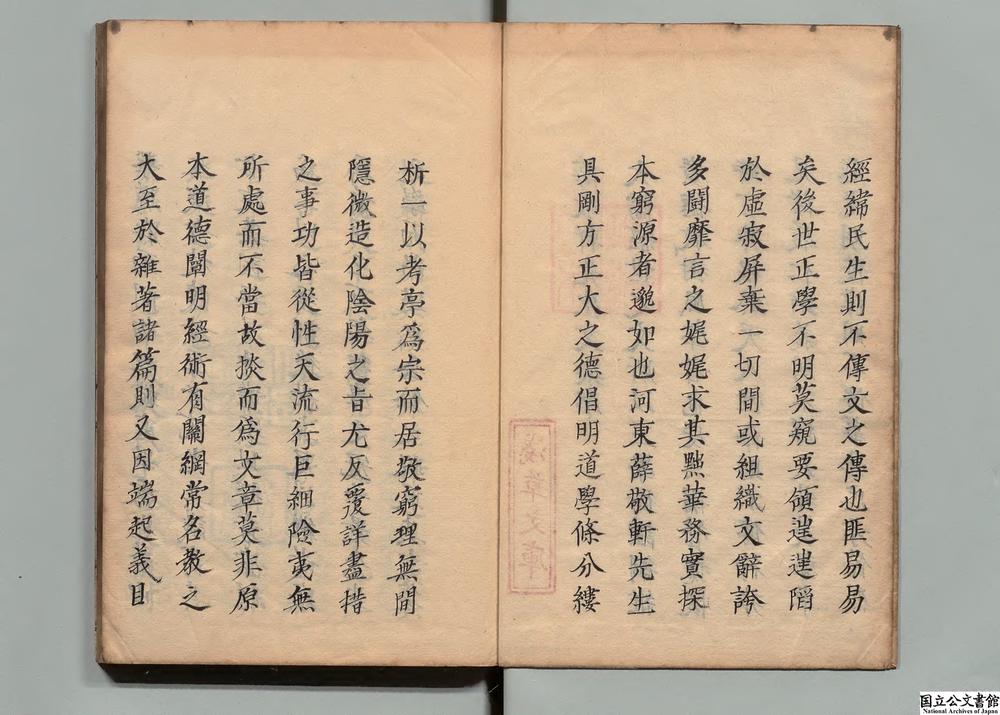 經緯民生則不傳文之傳也匪易易
矣後世正學不明莫窺要領逞逞陷
於虛寂屏棄一切間或組織文辭誇
多鬪靡言之娓娓求其黜華務實探
本窮源者邈如也河東薛敬軒先生
具剛方正大之德倡明道學條分縷
析一以考亭爲宗而居敬窮理無間
隱微造化陰陽之旨尤反覆詳盡措
之事功皆從性天流行巨細險夷無
所處而不當故掞而爲文章莫非原
本道德闡明經術有關綱常名教之
大至於雜著諸篇則又因端起義目
淺草文庫
国立公文書館
National Archives of Japan